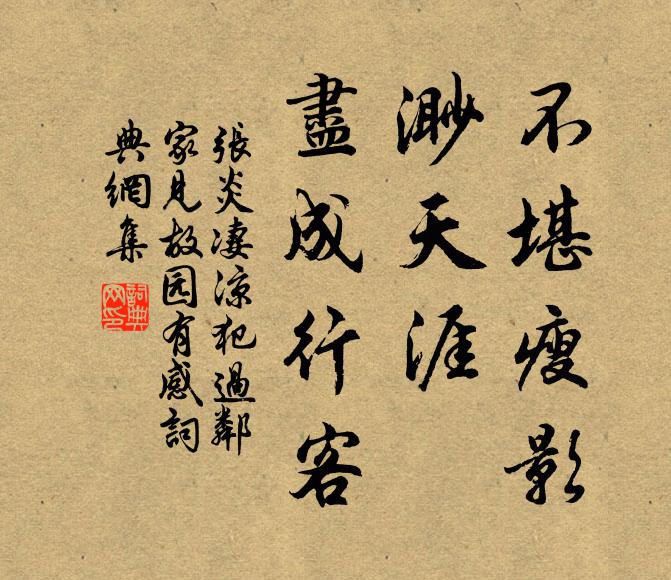 不堪瘦影
渺天涯
盡成行客
張炎凄涼犯過鄰
家見故园有感詞
典網集
詞典
网印